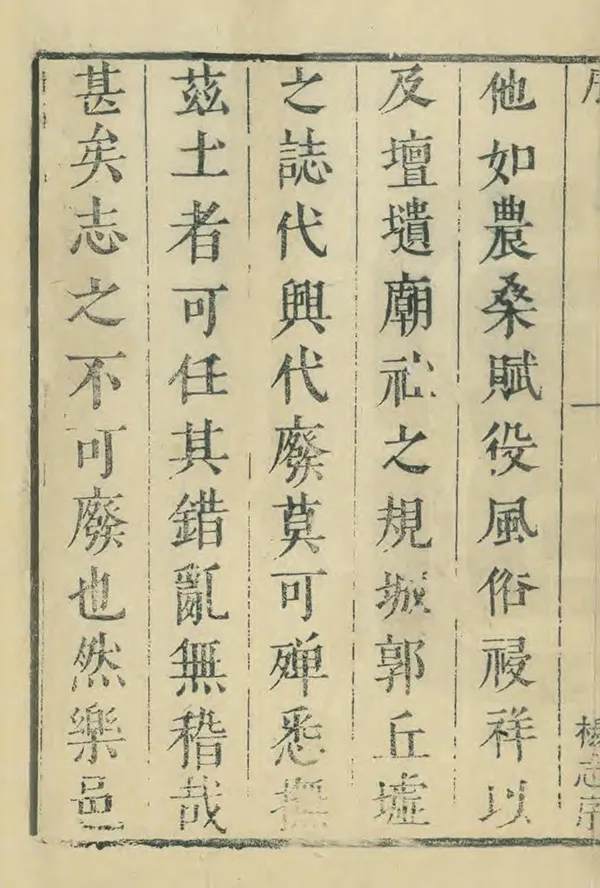 他如農桑賦役風俗祲祥以
及壇壝廟祀之規城郭丘墟
之誌代興代廢莫可殫悉撫
茲土者可任其錯亂無稽哉
甚矣志之不可廢也然樂邑